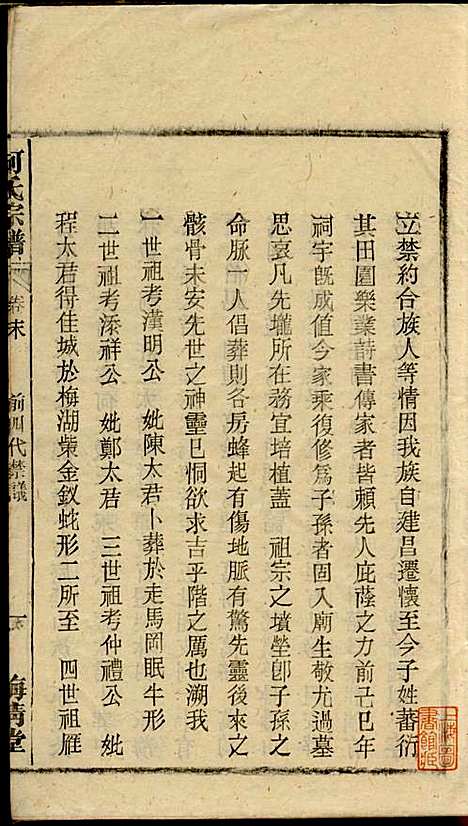 立禁約合族人等情因我族自建昌遷懷至今子姓蕃衍
其田園樂業詩書傳家者皆頼先人庇蔭之力前己巳年
祠宇旣成值今家乘復修爲子孫者固入廟生敬尤過墓
思哀凡先壠所在務宜培植蓋 祖宗之墳塋卽子孫之
命脉一人倡葬則各房蜂起有傷地脈有驚先靈後來之
骸骨未安先世之神靈已恫欲求吉乎階之厲也溯我
一世祖考漢明公 妣陳太君卜葬於走馬岡眠牛形
二世祖考添祥公 妣鄭太君 三世祖考仲禮公 妣
程太君得佳城於梅湖柴金釵蛇形二所至 四世祖雁
何氏宗譜 卷末 前四代禁議 梅靑堂
上海圖書館藏